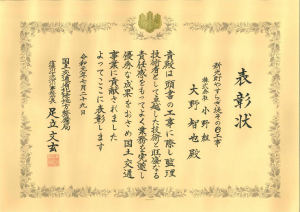 表彰状
株式会社 小野組
大野 智也 殿
貴殿は頭書の工事に際し監理
技術者として卓越した技術と旺盛なる
責任感をもってよく業務を完遂し
優秀な成果をおさめ国土交通
事業に貢献されました
よってここに表彰します
令和 年七月二十九日
国土交通省北陸地方整備局
足立文玄